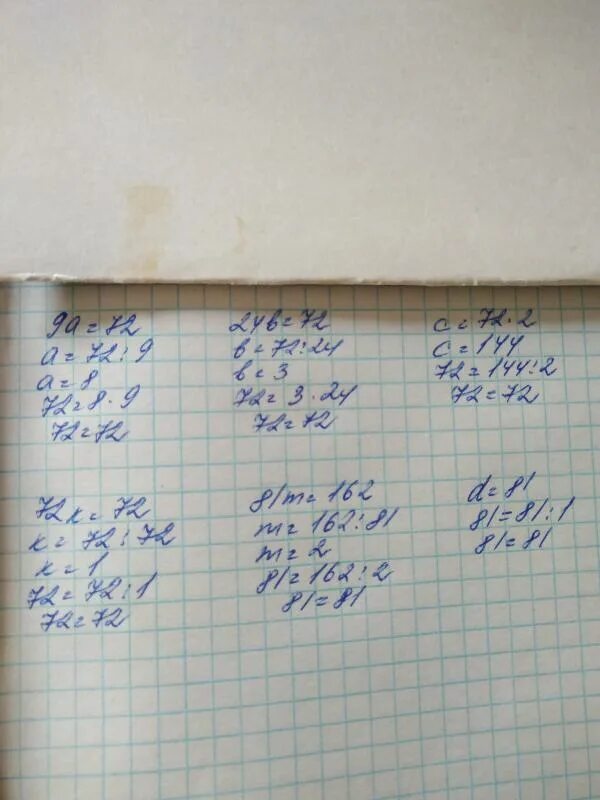 9a = 72
a = 72 : 9
a = 8
72 = 8 · 9
72 = 72
24b = 72
b = 72 : 24
b = 3
72 = 3 · 24
72 = 72
c = 72 · 2
c = 144
72 = 144 : 2
72 = 72
72к = 72
к = 72 : 72
к = 1
72 = 72 : 1
72 = 72
81m = 162
m = 162 : 81
m = 2
81 = 162 : 2
81 = 81
d = 81
81 = 81 : 1
81 = 81